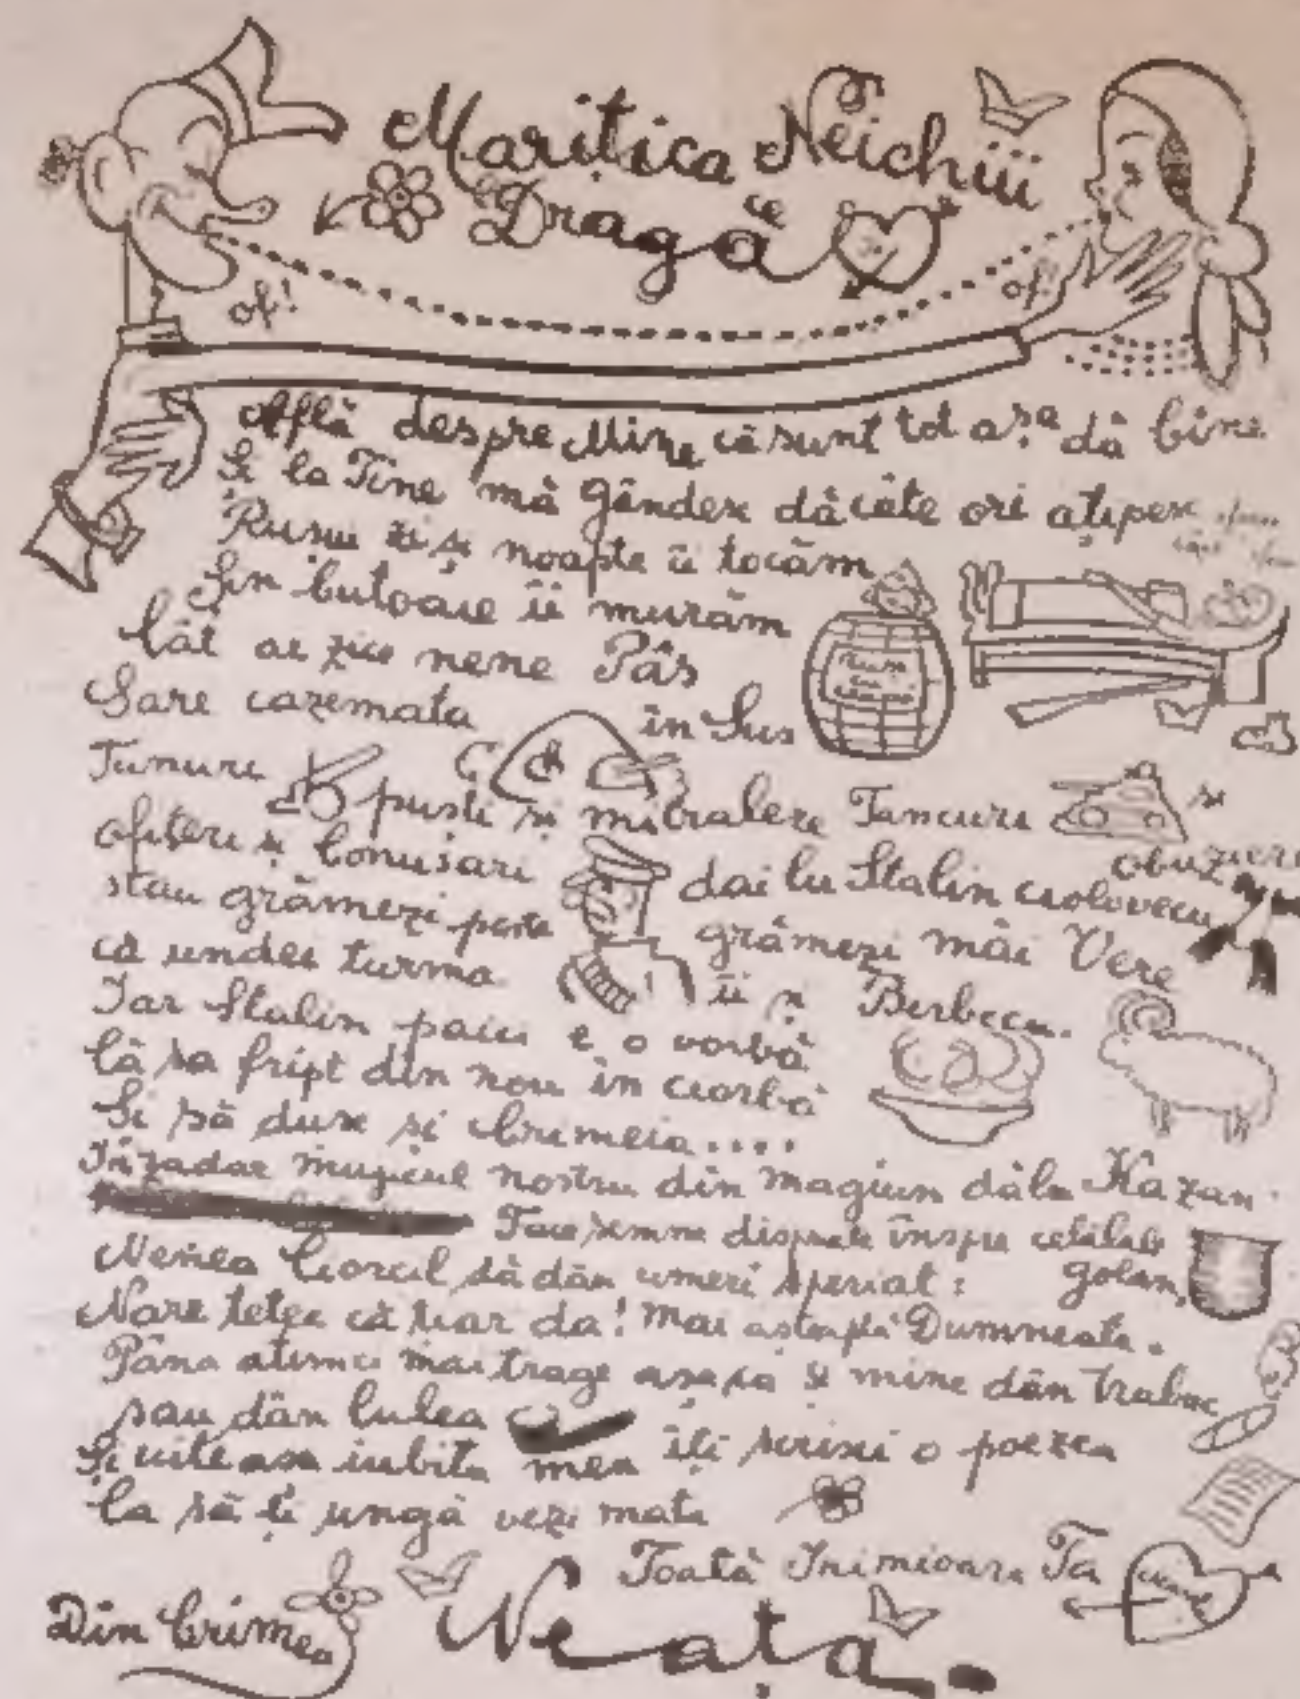 Marițica Neichiii
Dragă
of!
of!
Află despre Mine că sunt tot așa dă bine
Și la Tine mă gândesc dă câte ori ațipesc
Rusu zi și noapte îi tocăm
Șin butoaie îi murăm
Cât ai zice nene Pâs
Sare cazemata în Sus
Tunuri puști și mitraliere Tancuri și
obuziere
ofițeri și Comisari dai lu Stalin
stau grămezi peste grămezi măi Vere
că undei turma îi și Berbecu.
Iar Stalin e o vorbă
Că sa fript din nou în ciorbă
Și să duse și Crimeia....
Înzadar mugicul nostru din magiun dăla Kazan
Face semne disperate înspre celălalt
golan,
Nenea Ciorcil dă dân umeri speriat:
Nare tetea că tiar da! Mai așteaptă Dumneata.
Pâna atunci mai trage așa ca și mine dân trabuc
sau dân lulea
Și uite asa iubita mea îți scrisei o poezea
Ca să ți ungă vezi mata
Toată Inimioara Ta
Din Crimea
Neață